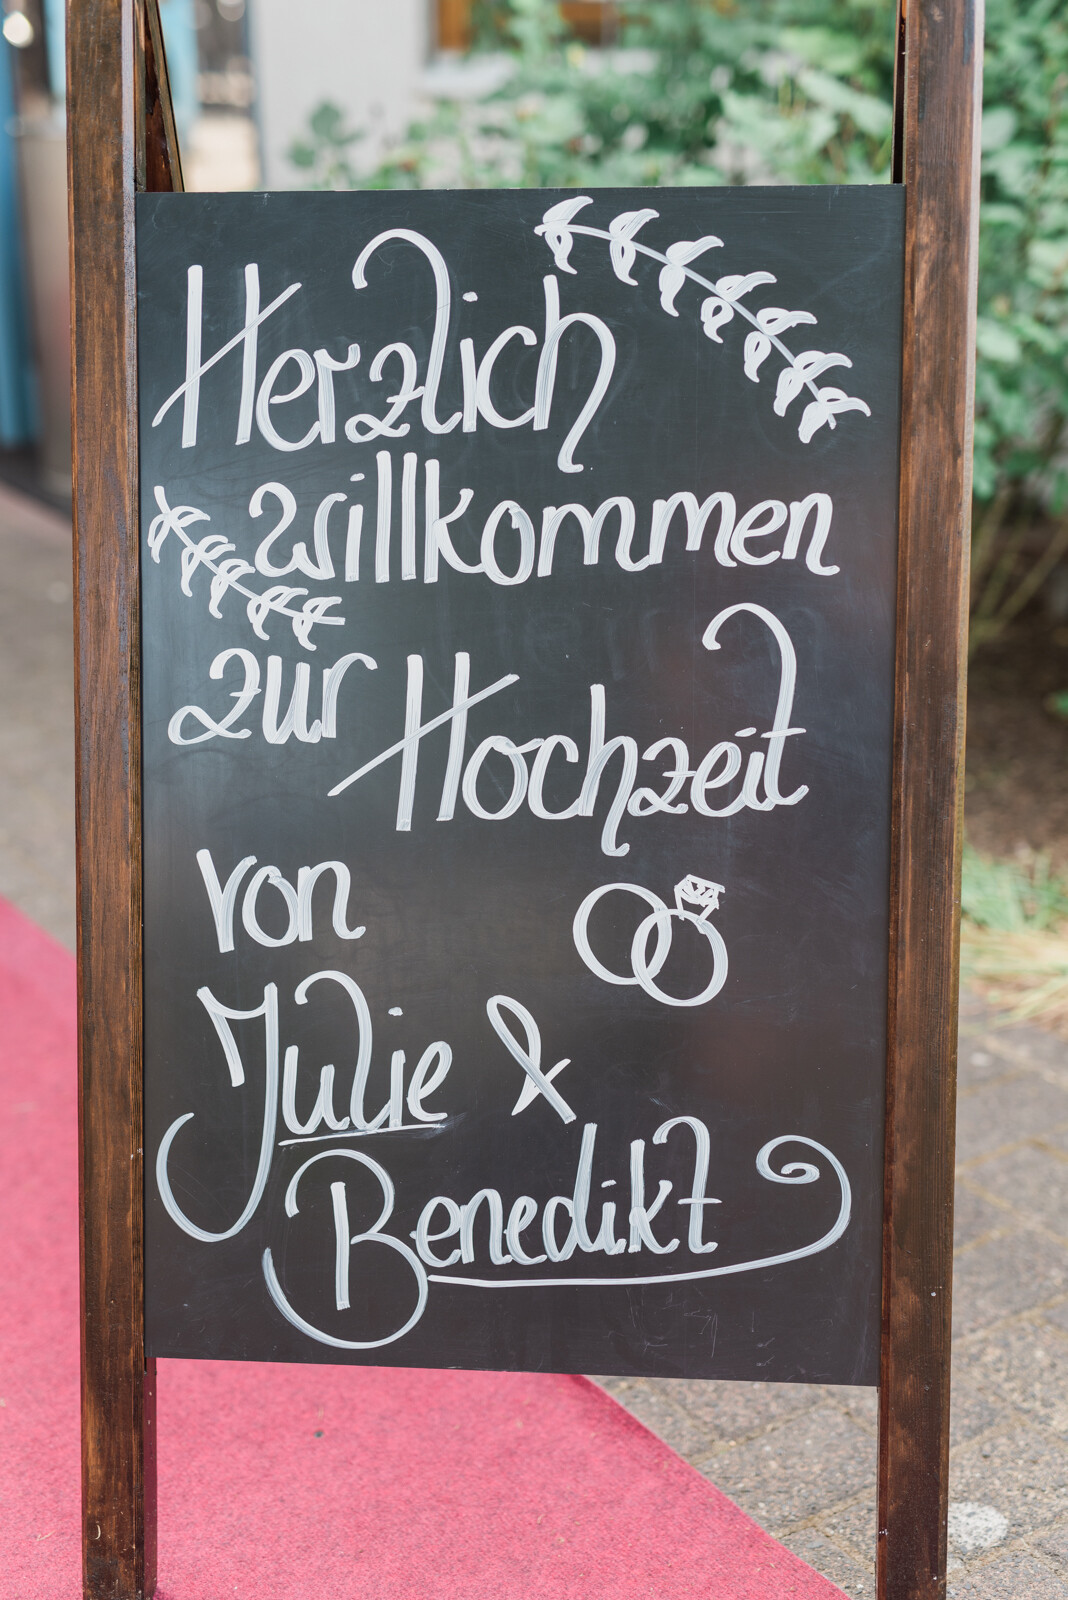 Herzlich
willkommen
zur Hochzeit
von
Julie &
Benedikt